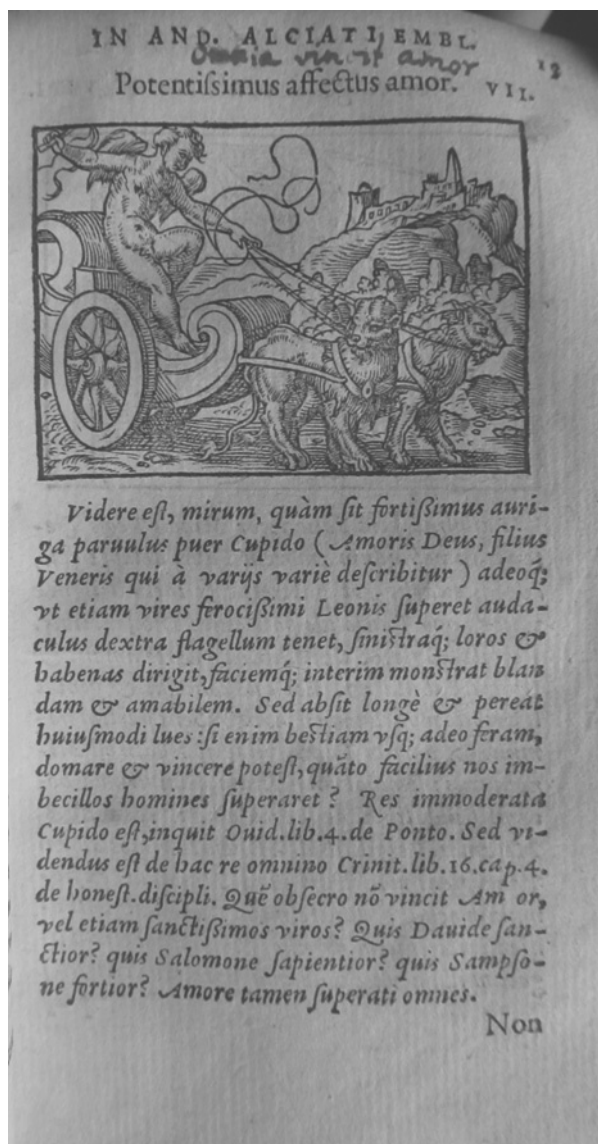 IN AND. ALCIATI EMBL.
Omnia vincit amor
13
Potentiſsimus affectus amor. VII.
Videre eſt, mirum, quàm ſit fortiſsimus auri-
ga paruulus puer Cupido (Amoris Deus, filius
Veneris qui à varijs variè deſcribitur) adeoq́;
vt etiam vires ferociſsimi Leonis ſuperet auda-
culus dextra flagellum tenet, ſiniſtraq́; loros &
habenas dirigit, faciemq́; interim monſtrat blan
dam & amabilem. Sed abſit longè & pereat
huiuſmodi lues :ſi enim beſtiam vſq; adeo feram,
domare & vincere poteſt, quāto facilius nos im-
becillos homines ſuperaret? Res immoderata
Cupido eſt,inquit Ouid.lib.4.de Ponto. Sed vi-
dendus eſt de hac re omnino Crinit.lib.16.cap.4.
de honeſt.diſcipli. Quē obſecro nō vincit Am or,
vel etiam ſanctiſsimos viros? Quis Dauide ſan-
ctior? quis Salomone ſapientior? quis Sampſo-
ne fortior? Amore tamen ſuperati omnes.
Non